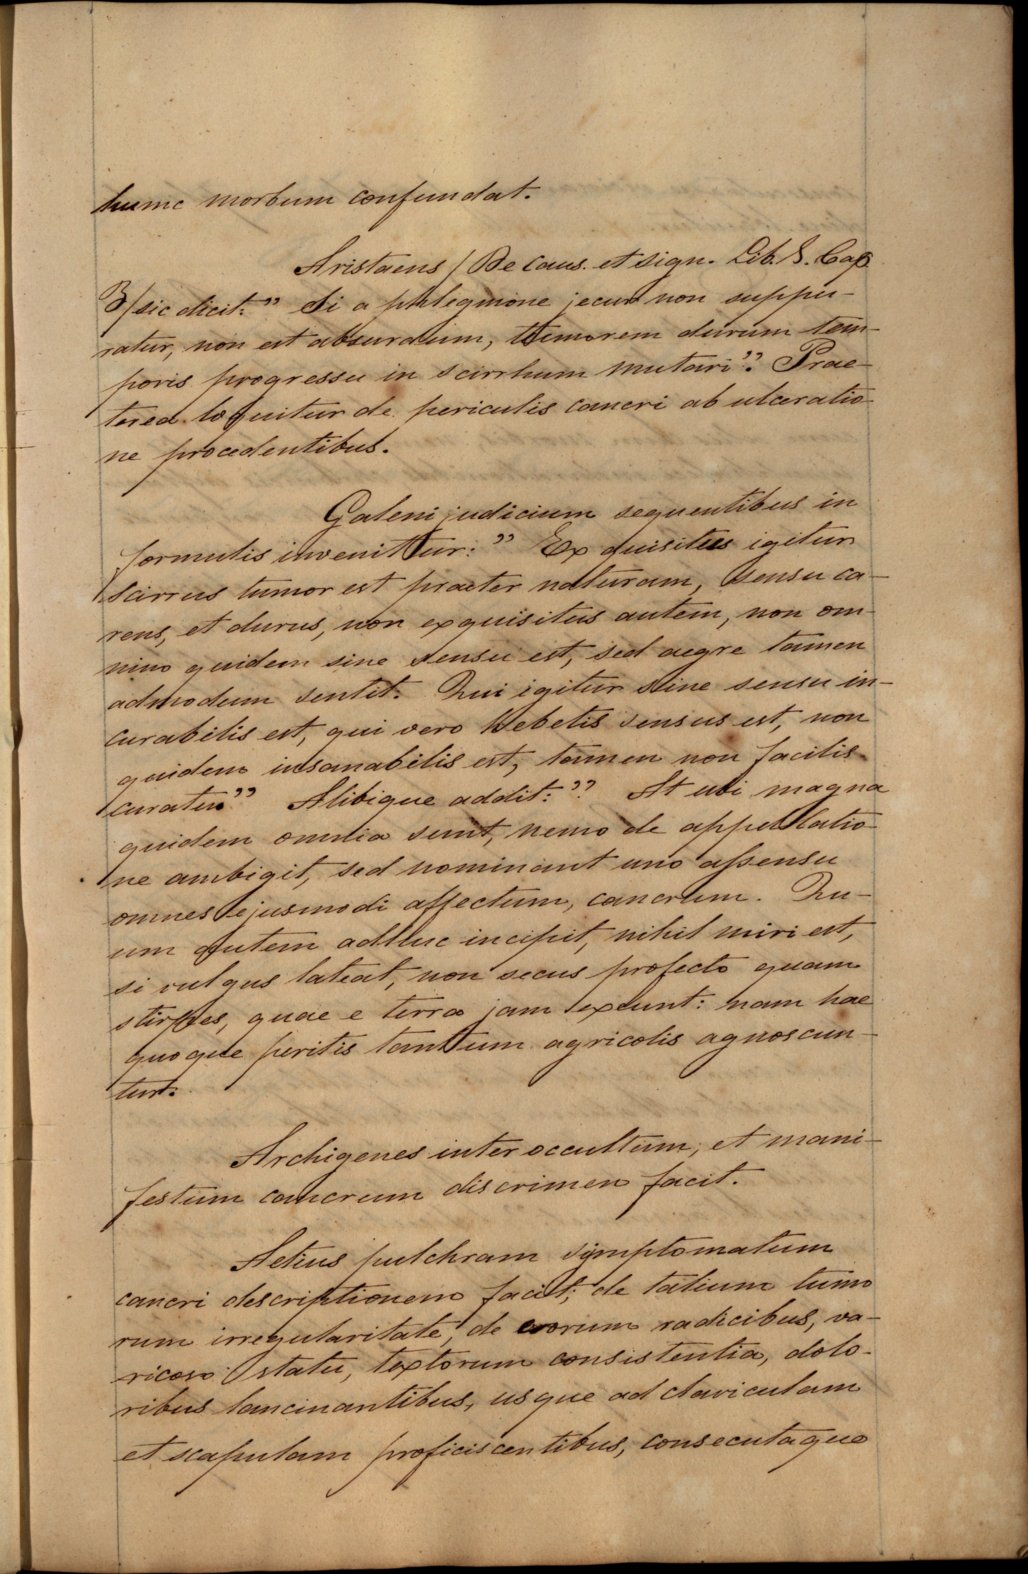 hunc morbum confundat.
Aristaeus / De caus. et sign. Lib. I. Cap
3/ sic dicit: " Si a phlegmone jecur non suppu-
ratur, non est absurdum, tumorem durum tem-
poris progressu in scirrhum mutari". Prae-
terea loquitur de periculis cancri ab ulceratio-
ne procedentibus.
Galeni judicium sequentibus in
formulis invenittur: " Exquisitus igitur
scirrus tumor est praeter naturam, sensu ca-
rens, et durus, non exquisitus autem, non om-
nino quidem sine sensu est, sed aegre tamen
admodum sentit. Qui igitur sine sensu in-
curabilis est, qui vero hebetis sensus est, non
quidem insanabilis est, tamen non facilis
curatu" Alibique addit: " At ubi magna
quidem omnia sunt, nemo de appellatio-
ne ambigit, sed nominant uno assensu
omnes ejusmodi affectum, cancrum. Qu-
um autem adhuc incipit, nihil miri est,
si vulgus lateat, non secus profecto quam
stirpes, quae e terra jam exeunt: nam hae
quoque peritis tantum agricolis agnoscun-
tur.
Archigenes inter occultum, et mani-
festum cancrum discrimen facit.
Aetius pulchram symptomatum
cancri descriptionem facit; de talium tumo
rum irregularitate, de eorum radicibus, va-
ricoso statu, textorum consistentia, dolo-
ribus lancinantibus, usque ad claviculam
et scapulam proficiscentibus, consecutaque